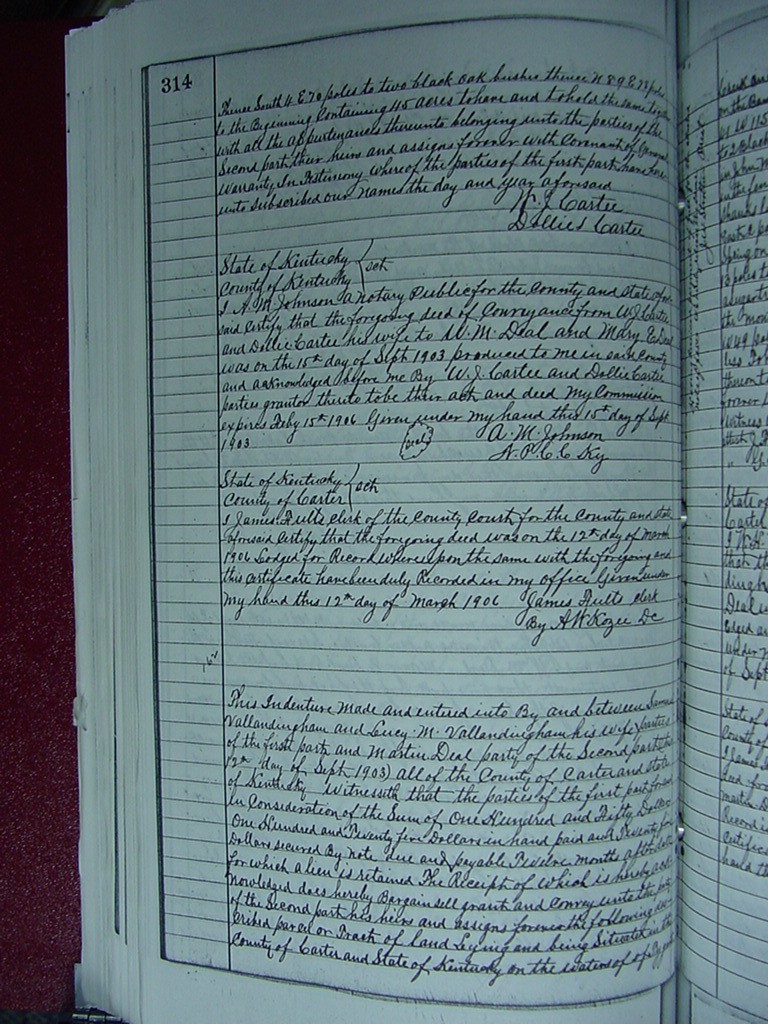 314
Thence South 4 E 70 poles to two black oak bushes thence N 89 E 78 poles
to the Beginning Containing 115 acres to have and to hold the same together
with all the appurtenances thereunto belonging unto the parties of the
Second part their heirs and assigns forever with Covenant of General
Warranty In Testimony whereof the parties of the first part have here
unto subscribed our names the day and year aforesaid
W. J. Cartee
Dollie Cartee
State of Kentucky
County of Kentucky } sct
I A. M. Johnson a notary Public for the County and State afore
said Certify that the foregoing deed of Conveyance from W J Cartee
and Dollie Cartee his wife to W. M. Deal and Mary E Deal
was on the 15th day of Sept 1903 produced to me in said County
and acknowledged before me By W. J. Cartee and Dollie Cartee
parties grantor thereto to be their act and deed My Commission
expires Feby 15th 1906 Given under my hand this 15th day of Sept
1903 (seal) A. M. Johnson
N. P. C. C. Ky
State of Kentucky
County of Carter } sct
I James Fults Clerk of the County Court for the County and State
aforesaid Certify that the foregoing deed was on the 12th day of March
1906 Lodged for Record whereupon the same with the foregoing and
this Certificate have been duly Recorded in my office Given under
my hand this 12th day of March 1906 James Fults Clerk
By A W Kozee DC
This Indenture Made and entered into By and between James
Vallandingham and Lucy M. Vallandingham his wife parties
of the first part and Martin Deal party of the Second part this
12th day of Sept 1903) all of the County of Carter and State
of Kentucky Witnesseth that the parties of the first part for and
in Consideration of the Sum of One Hundred and Fifty Dollars
One Hundred and Twenty five Dollars in hand paid and Twenty five
Dollars secured By note due and payable Twelve months after date
for which a lien is retained The Receipt of which is hereby ack
nowledged does hereby Bargain sell grant and Convey unto the party
of the Second part his heirs and assigns forever the following des
cribed parcel or Tract of land Lying and being Situated in the
County of Carter and State of Kentucky on the waters of